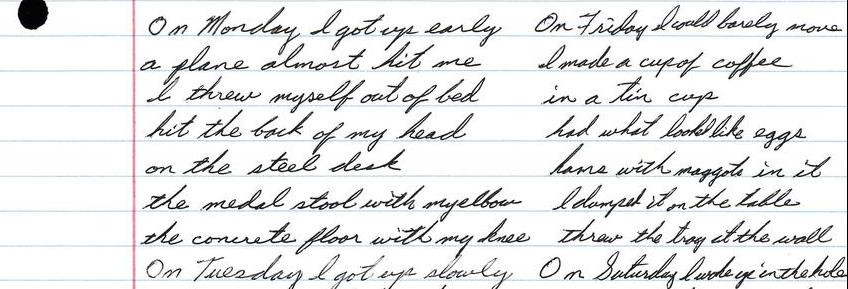 On Monday I got up early
a plane almost hit me
I threw myself out of bed
hit the back of my head
on the steel desk
the medal stool with my elbow
the concrete floor with my knee
On Tuesday I got up slowly
On Friday I could barely move
I made a cup of coffee
in a tin cup
had what looked like eggs
hams with maggots in it
I dumped it on the table
threw the tray at the wall
On Saturday I woke up in the hole